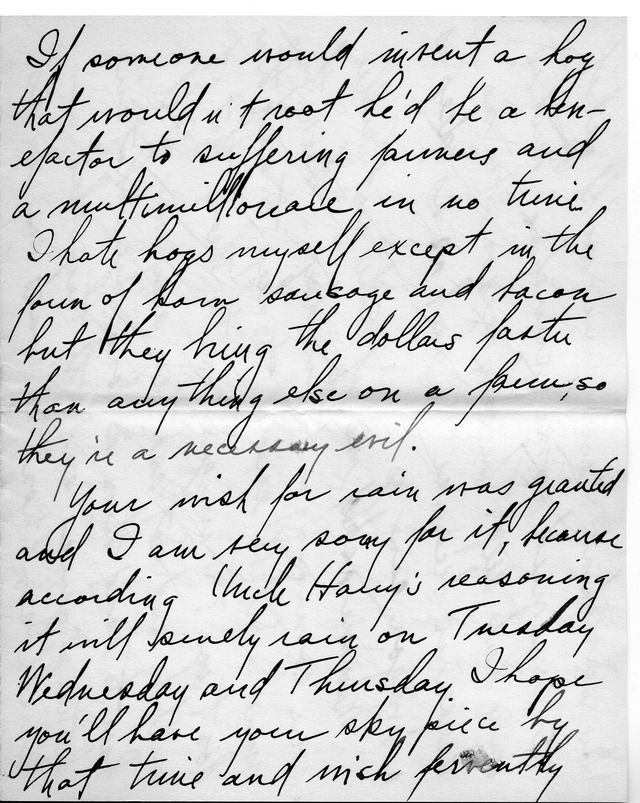 If someone would invent a hog
that wouldn't root he'd be a ben-
efactor to suffering farmers and
a multimillionaire in no time.
I hate hogs myself except in the
form of ham sausage and bacon
but they bring the dollars faster
than anything else on a farm, so
they're a necessary evil.
Your wish for rain was granted
and I am very sorry for it, because
according Uncle Harry's reasoning
it will surely rain on Tuesday
Wednesday and Thursday. I hope
you'll have your sky piece by
that time and wish fervently